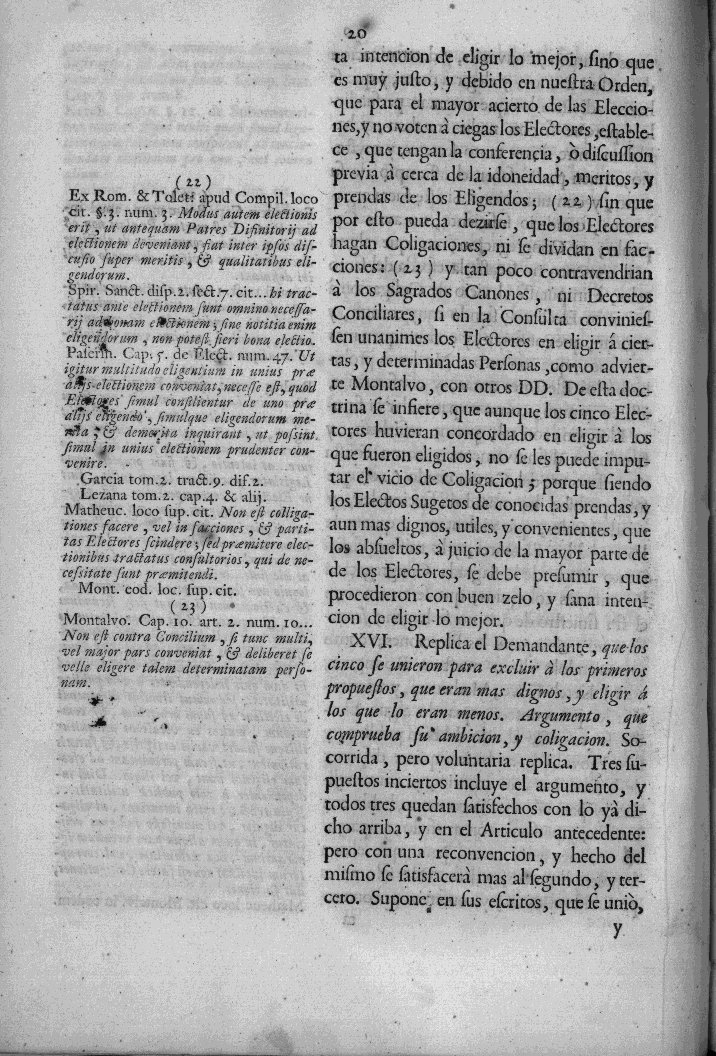 20
ta intencion de eligir lo mejor, ſino que
es muy juſto, y debido en nueſtra Orden,
que para el mayor acierto de las Eleccio-
nes, y no voten à ciegas los Electores, eſtable-
ce, que tengan la conferencia, ò diſcuſſion
previa à cerca de la idoneidad, meritos, y
prendas de los Eligendos; (22) ſin que
por eſto pueda dezirſe, que los Electores
hagan Coligaciones, ni ſe dividan en fac-
ciones: (23) y tan poco contravendrian
à los Sagrados Canones, ni Decretos
Conciliares, ſi en la Conſulta convinieſ-
ſen unanimes los Electores en eligir á cier-
tas, y determinadas Perſonas, como advier-
te Montalvo, con otros DD. De eſta doc-
trina ſe infiere, que aunque los cinco Elec-
tores huvieran concordado en eligir á los
que fueron eligidos, no ſe les puede impu-
tar el vicio de Coligacion; porque ſiendo
los Electos Sugetos de conocidas prendas, y
aun mas dignos, utiles, y convenientes, que
los abſueltos, à juicio de la mayor parte de
de los Electores, ſe debe preſumir, que
procedieron con buen zelo, y ſana inten-
cion de eligir lo mejor.
XVI. Replica el Demandante, que los
cinco ſe unieron para excluir à los primeros
propueſtos, que eran mas dignos, y eligir á
los que lo eran menos. Argumento, que
comprueba ſu ambicion, y coligacion. So-
corrida, pero voluntaria replica. Tres ſu-
pueſtos inciertos incluye el argumento, y
todos tres quedan ſatisfechos con lo yà di-
cho arriba, y en el Articulo antecedente:
pero con una reconvencion, y hecho del
miſmo ſe ſatisfacerà mas al ſegundo, y ter-
cero. Supone, en ſus eſcritos, que ſe uniò,
y
(22)
Ex Rom. & Toleti apud Compil. loco
cit. §. 3. num. 3. Modus autem electionis
erit, ut antequam Patres Difinitorij ad
electionem deveniant, fiat inter ipſos diſ-
cuſio ſuper meritis, & qualitatibus eli-
gendorum.
Spir. Sanct. diſp. 2. ſect. 7. cit... hi trac-
tatus ante electionem ſunt omnino neceſſa-
rij ad bonam electionem; ſine notitia enim
eligendorum, non poteſt fieri bona electio.
Paſerin. Cap. 5. de Elect. num. 47. Ut
igitur multitudo eligentium in unius præ
alijs electionem conveniat, neceſſe eſt, quod
Electores ſimul conſilientur de uno præ
alijs eligendo, ſimulque eligendorum me-
rita, & demerita inquirant, ut poſſint
ſimul in unius electionem prudenter con-
venire.
Garcia tom. 2. tract. 9. dif. 2.
Lezana tom. 2. cap. 4. & alij.
Matheuc. loco ſup. cit. Non eſt colliga-
tiones facere, vel in facciones, & parti-
tas Electores ſcindere; ſed præmitere elec-
tionibus tractatus conſultorios, qui de ne-
ceſſitate ſunt præmitendi.
Mont. eod. loc. ſup. cit.
(23)
Montalvo. Cap. 10. art. 2. num. 10...
Non eſt contra Concilium, ſi tunc multi,
vel major pars conveniat, & deliberet ſe
velle eligere talem determinatam perſo-
nam.